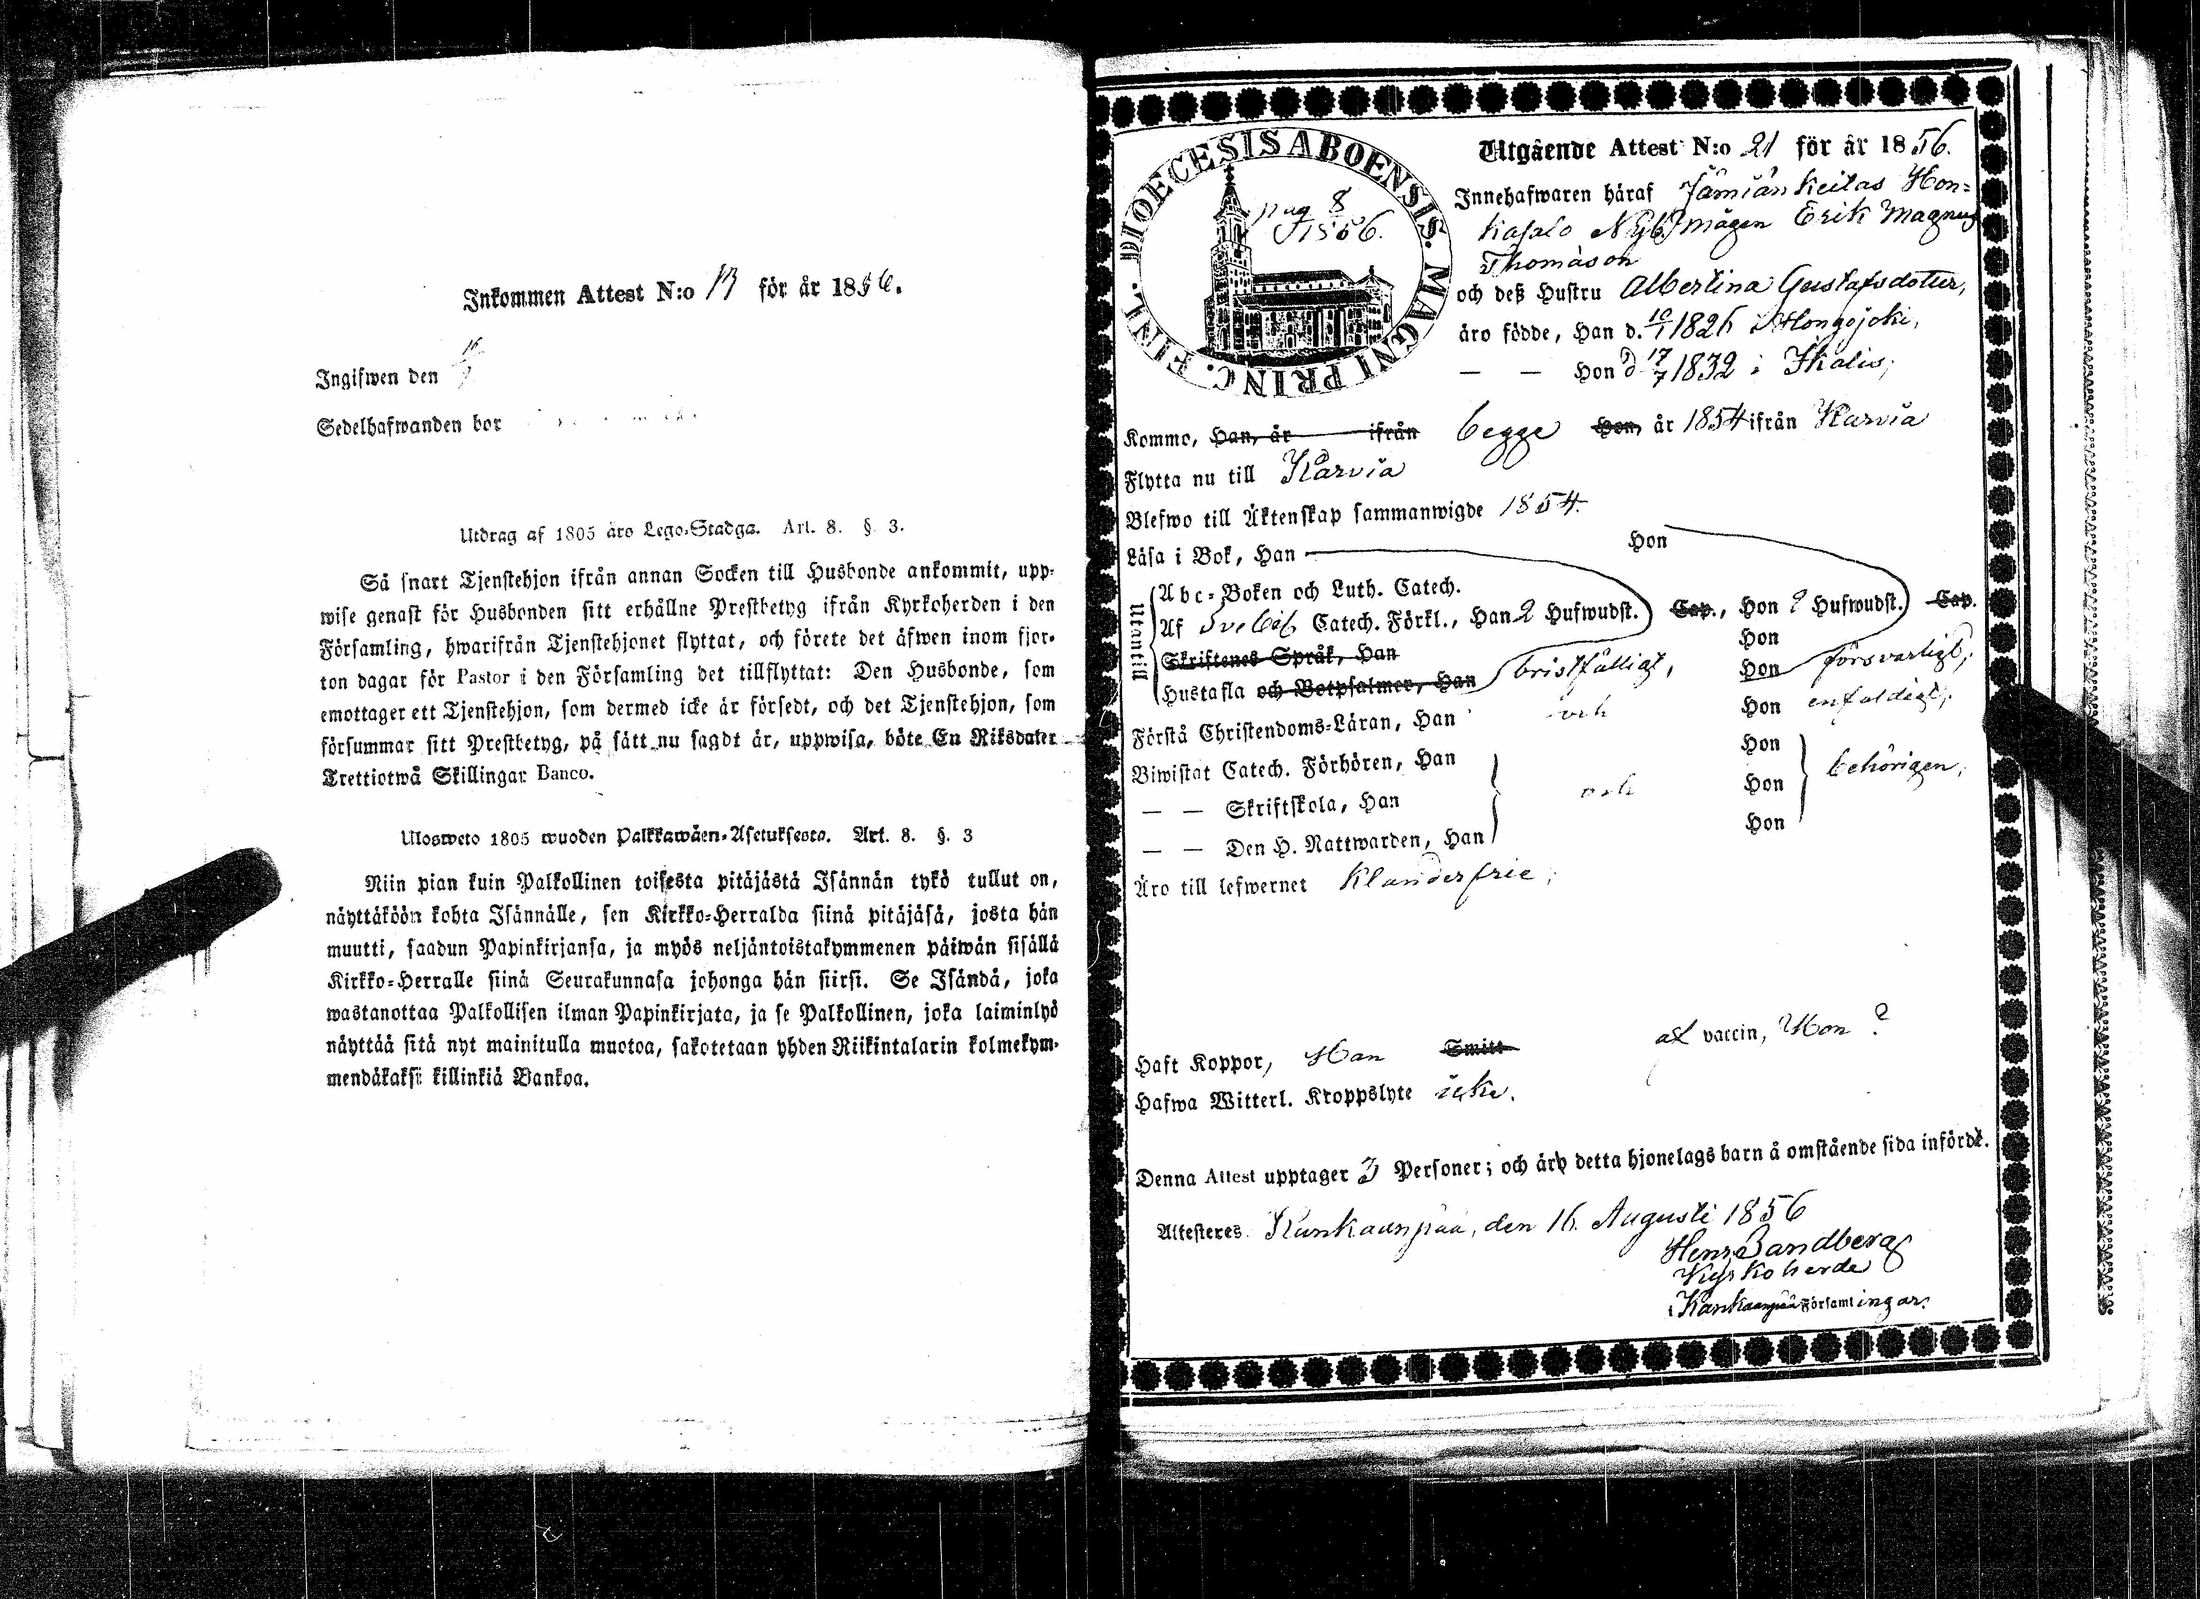 Inkommen Attest N:o 13 för år 1856.
Ingifwen den
Sedelhafwanden bor
Utdrag af 1805 års Lego-Stadga. Art. 8. §. 3.
Så snart Tjenstehjon ifrån annan Socken till Husbonde ankommit, upp-
wise genast för Husbonden sitt erhållne Prestbetyg ifrån Kyrkoherden i den
Församling, hwarifrån Tjenstehjonet flyttat, och förete det äfwen inom fjor-
ton dagar för Pastor i den Församling det tillflyttat: Den Husbonde, som
emottager ett Tjenstehjon, som dermed icke är försedt, och det Tjenstehjon, som
försummar sitt Prestbetyg, på sätt nu sagdt är, uppwisa, böte En Riksdaler
Trettiotwå Skillingar Banco.
Ulosweto 1805 wuoden Palkkawäen-Asetuksesta. Art. 8. §. 3
Niin pian kuin Palkollinen toisesta pitäjästä Isännän tykö tullut on,
näyttäköön kohta Isännälle, sen Kirkko-Herralda siinä pitäjäsä, josta hän
muutti, saadun Papinkirjansa, ja myös neljäntoistakymmenen päiwän sisällä
Kirkko-Herralle siinä Seurakunnasa johonga hän siirsi. Se Isändä, joka
wastanottaa Palkollisen ilman Papinkirjata, ja se Palkollinen, joka laiminlyö
näyttää sitä nyt mainitulla muotoa, sakotetaan yhden Riikintalarin kolmekym-
mendäkaksi killinkiä Bankoa.
DIOECESIS ABOENSIS. MAGNI PRINC. FINL.
pag 8
1856.
Utgående Attest N:o 21 för år 1856.
Innehafwaren häraf Jämiänkeitas Hon=
kasalo Nyb. mågen Erik Magnus
Thomasson
och deß Hustru Albertina Gustafsdotter,
äro födde, Han d. 10/1 1826 i Hongojoki,
— — Hon d 17/7 1832 i Ikalis;
Kommo, Han, år ifrån begge Hon, år 1854 ifrån Karvia
Flytta nu till Karvia
Blefwo till Äktenskap sammanwigde 1854.
Läsa i Bok, Han Hon
Utantill
Abc-Boken och Luth. Catech.
Af Svebil. Catech. Förkl., Han 2 Hufwudst. Cap., Hon 2 Hufwudst. Cap.
Skriftenes Språk, Han Hon
Hustafla och Botpsalmer, Han bristfälligt, Hon försvarligt,
Förstå Christendoms-Läran, Han och Hon enfaldigt,
Biwistat Catech. Förhören, Han Hon
— — Skriftskola, Han och Hon behörigen,
— — Den H. Nattwarden, Han Hon
Äro till lefwernet klanderfrie;
Haft Koppor, Han Smitt af vaccin, Hon ?
Hafwa Witterl. Kroppslyte icke.
Denna Attest upptager 3 Personer; och äro detta hjonelags barn å omstående sida införde.
Attesteres Kankaanpää, den 16 Augusti 1856
Henr Sandberg
Kyrkoherde
i Kankaanpää Församlingar.